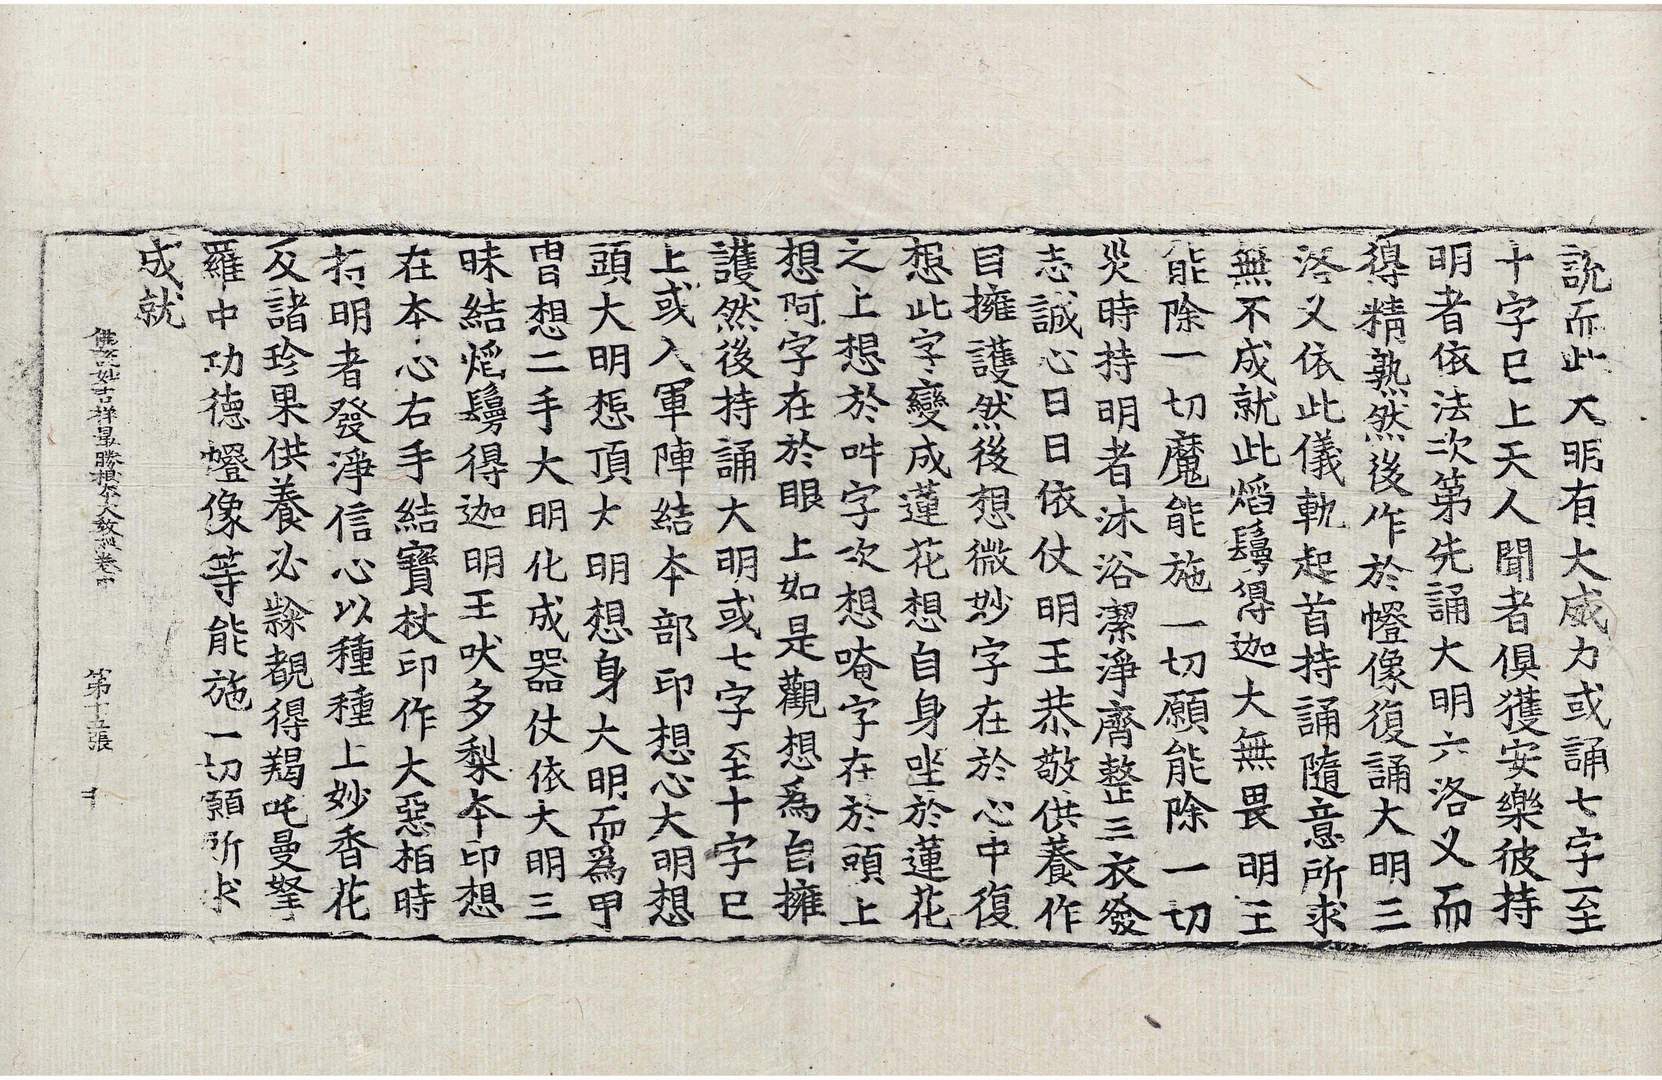 說而此大明有大威力或誦七字至
十字已上天人聞者俱獲安樂彼持
明者依法次第先誦大明六洛叉而
得精熟然後作於幰像復誦大明三
洛叉依此儀軌起首持誦隨意所求
無不成就此熖鬘得迦大無畏明王
能除一切魔能施一切願能除一切
災時持明者沐浴潔淨齊整三衣發
志誠心日日依仗明王恭敬供養作
目擁護然後想微妙字在於心中復
想此字變成蓮花想自身坐於蓮花
之上想於吽字次想唵字在於頭上
想阿字在於眼上如是觀想爲自擁
護然後持誦大明或七字至十字已
上或入軍陣結本部印想心大明想
頭大明想頂大明想身大明而爲甲
冑想二手大明化成器仗依大明三
昧結熖鬘得迦明王吠多梨本印想
在本心右手結寶杖印作大惡相時
持明者發淨信心以種種上妙香花
及諸珍果供養必隸覩得羯吒曼拏
羅中功德幰像等能施一切願所求
成就
佛說妙吉祥最勝根本大教經卷中　第十五張